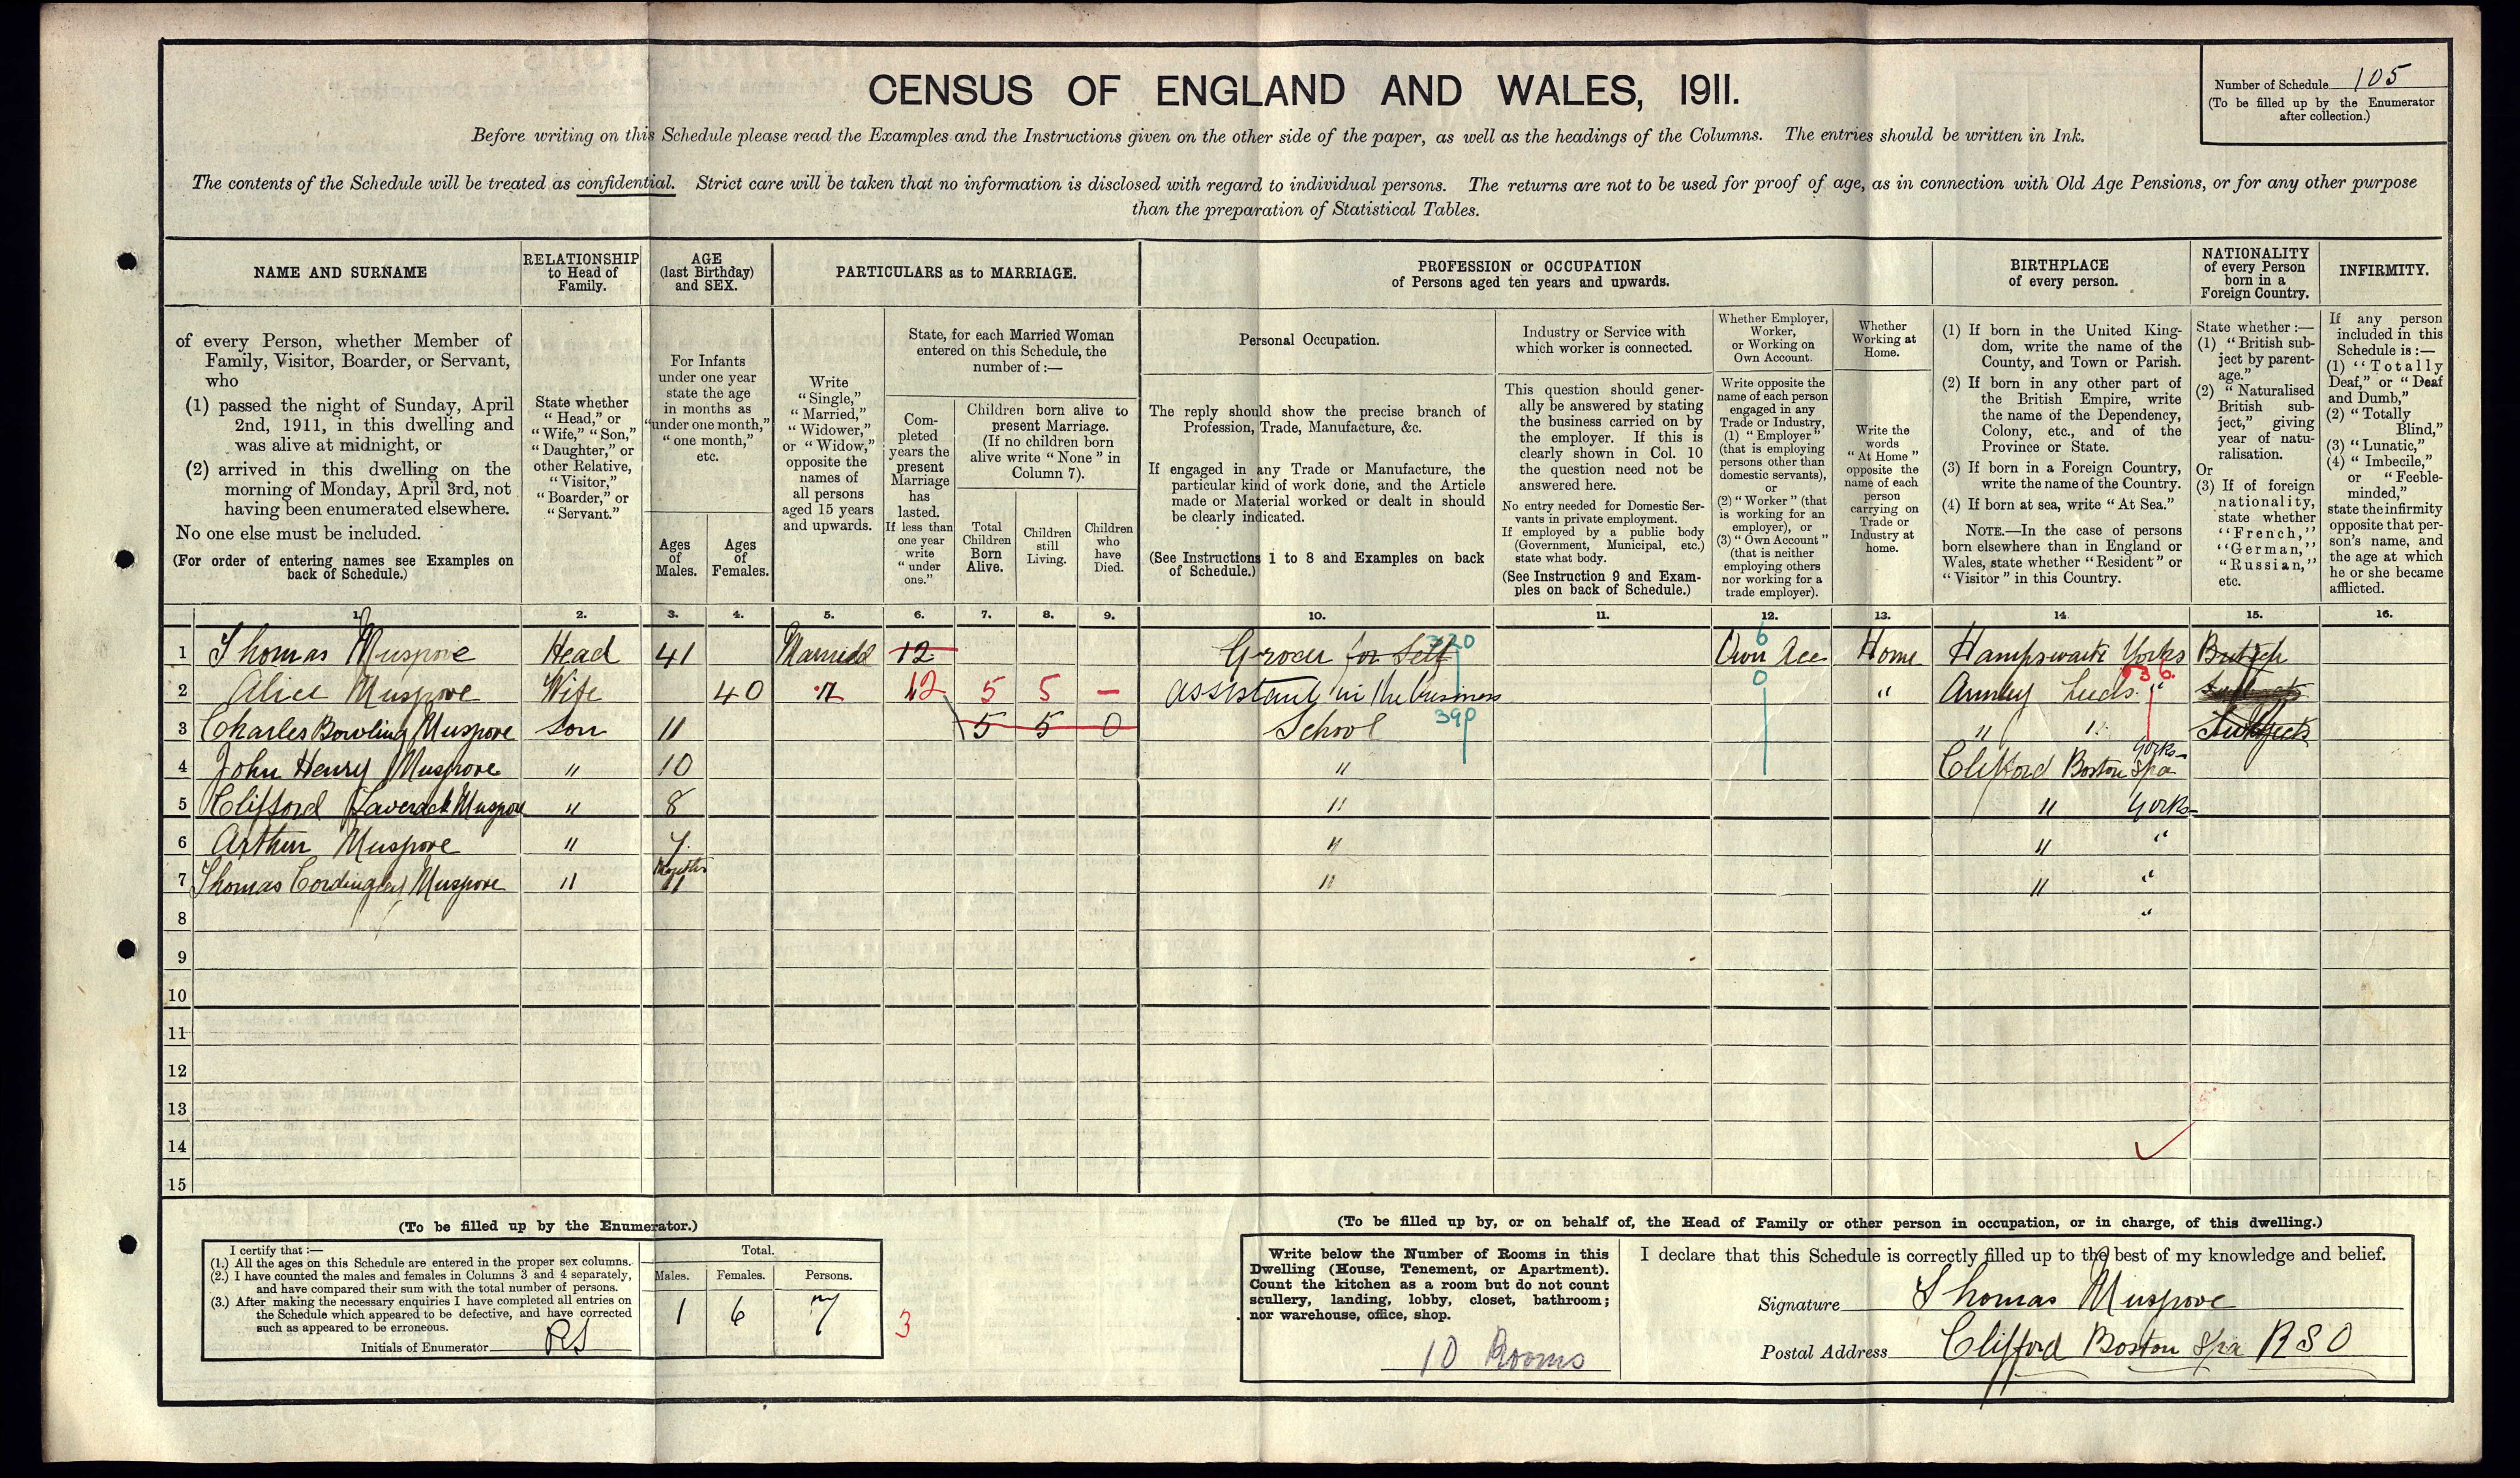 CENSUS OF ENGLAND AND WALES, 1911.
Number of Schedule 105
(To be filled up by the Enumerator
after collection.)
Before writing on this Schedule please read the Examples and the Instructions given on the other side of the paper, as well as the headings of the Columns. The entries should be written in Ink.
The contents of the Schedule will be treated as confidential. Strict care will be taken that no information is disclosed with regard to individual persons. The returns are not to be used for proof of age, as in connection with Old Age Pensions, or for any other purpose
than the preparation of Statistical Tables.
NAME AND SURNAME
RELATIONSHIP
to Head of
Family.
AGE
(last Birthday)
and SEX.
PARTICULARS as to MARRIAGE.
PROFESSION or OCCUPATION
of Persons aged ten years and upwards.
BIRTHPLACE
of every person.
NATIONALITY
of every Person
born in a
Foreign Country.
INFIRMITY.
of every Person, whether Member of
Family, Visitor, Boarder, or Servant,
who
(1) passed the night of Sunday, April
2nd, 1911, in this dwelling and
was alive at midnight, or
(2) arrived in this dwelling on the
morning of Monday, April 3rd, not
having been enumerated elsewhere.
No one else must be included.
(For order of entering names see Examples on
back of Schedule.)
State whether
"Head," or
"Wife," "Son,"
"Daughter," or
other Relative,
"Visitor,"
"Boarder," or
"Servant."
For Infants
under one year
state the age
in months as
"under one month,"
"one month,"
etc.
Ages
of
Males.
Ages
of
Females.
Write
"Single,"
"Married,"
"Widower,"
or "Widow,"
opposite the
names of
all persons
aged 15 years
and upwards.
State, for each Married Woman
entered on this Schedule, the
number of :—
Com-
pleted
years the
present
Marriage
has
lasted.
If less than
one year
write
"under
one."
Children born alive to
present Marriage.
(If no children born
alive write "None" in
Column 7).
Total
Children
Born
Alive.
Children
still
Living.
Children
who
have
Died.
Personal Occupation.
The reply should show the precise branch of
Profession, Trade, Manufacture, &c.
If engaged in any Trade or Manufacture, the
particular kind of work done, and the Article
made or Material worked or dealt in should
be clearly indicated.
(See Instructions 1 to 8 and Examples on back
of Schedule.)
Industry or Service with
which worker is connected.
This question should gener-
ally be answered by stating
the business carried on by
the employer. If this is
clearly shown in Col. 10
the question need not be
answered here.
No entry needed for Domestic Ser-
vants in private employment.
If employed by a public body
(Government, Municipal, etc.)
state what body.
(See Instruction 9 and Exam-
ples on back of Schedule.)
Whether Employer,
Worker,
or Working on
Own Account.
Write opposite the
name of each person
engaged in any
Trade or Industry,
(1) "Employer"
(that is employing
persons other than
domestic servants),
or
(2) "Worker" (that
is working for an
employer), or
(3) "Own Account"
(that is neither
employing others
nor working for a
trade employer).
Whether
Working at
Home.
Write the
words
"At Home"
opposite the
name of each
person
carrying on
Trade or
Industry at
home.
(1) If born in the United King-
dom, write the name of the
County, and Town or Parish.
(2) If born in any other part of
the British Empire, write
the name of the Dependency,
Colony, etc., and of the
Province or State.
(3) If born in a Foreign Country,
write the name of the Country.
(4) If born at sea, write "At Sea."
NOTE.—In the case of persons
born elsewhere than in England or
Wales, state whether "Resident" or
"Visitor" in this Country.
State whether :—
(1) "British sub-
ject by parent-
age."
(2) "Naturalised
British sub-
ject," giving
year of natu-
ralisation.
Or
(3) If of foreign
nationality,
state whether
"French,"
"German,"
"Russian,"
etc.
If any person
included in this
Schedule is :—
(1) "Totally
Deaf," or "Deaf
and Dumb,"
(2) "Totally
Blind,"
(3) "Lunatic,"
(4) "Imbecile,"
or "Feeble-
minded,"
state the infirmity
opposite that per-
son's name, and
the age at which
he or she became
afflicted.
1. 2. 3. 4. 5. 6. 7. 8. 9. 10. 11. 12. 13. 14. 15. 16.
1 Thomas Musgrove Head 41 Married 12 Grocer for Self 320 6 Own Acc Home Hampswaite Yorks British
2 Alice Musgrove Wife 40 12 5 5 — assistant in the business 0 " Armley Leeds " 036
3 Charles Bowling Musgrove Son 11 5 5 0 School 390 " " Subjects
4 John Henry Musgrove " 10 " Clifford Boston Spa Yorks
5 Clifford Laverack Musgrove " 8 " " Yorks
6 Arthur Musgrove " 7 " " "
7 Thomas Cordingley Musgrove " Months 11 " " "
8 "
9
10
11
12
13
14
15
(To be filled up by the Enumerator.)
I certify that :—
(1.) All the ages on this Schedule are entered in the proper sex columns.
(2.) I have counted the males and females in Columns 3 and 4 separately,
and have compared their sum with the total number of persons.
(3.) After making the necessary enquiries I have completed all entries on
the Schedule which appeared to be defective, and have corrected
such as appeared to be erroneous.
Initials of Enumerator RS
Total.
Males. Females. Persons.
1 6 7
3
(To be filled up by, or on behalf of, the Head of Family or other person in occupation, or in charge, of this dwelling.)
Write below the Number of Rooms in this
Dwelling (House, Tenement, or Apartment).
Count the kitchen as a room but do not count
scullery, landing, lobby, closet, bathroom;
nor warehouse, office, shop.
10 Rooms
I declare that this Schedule is correctly filled up to the best of my knowledge and belief.
Signature Thomas Musgrove
Postal Address Clifford Boston Spa RSO